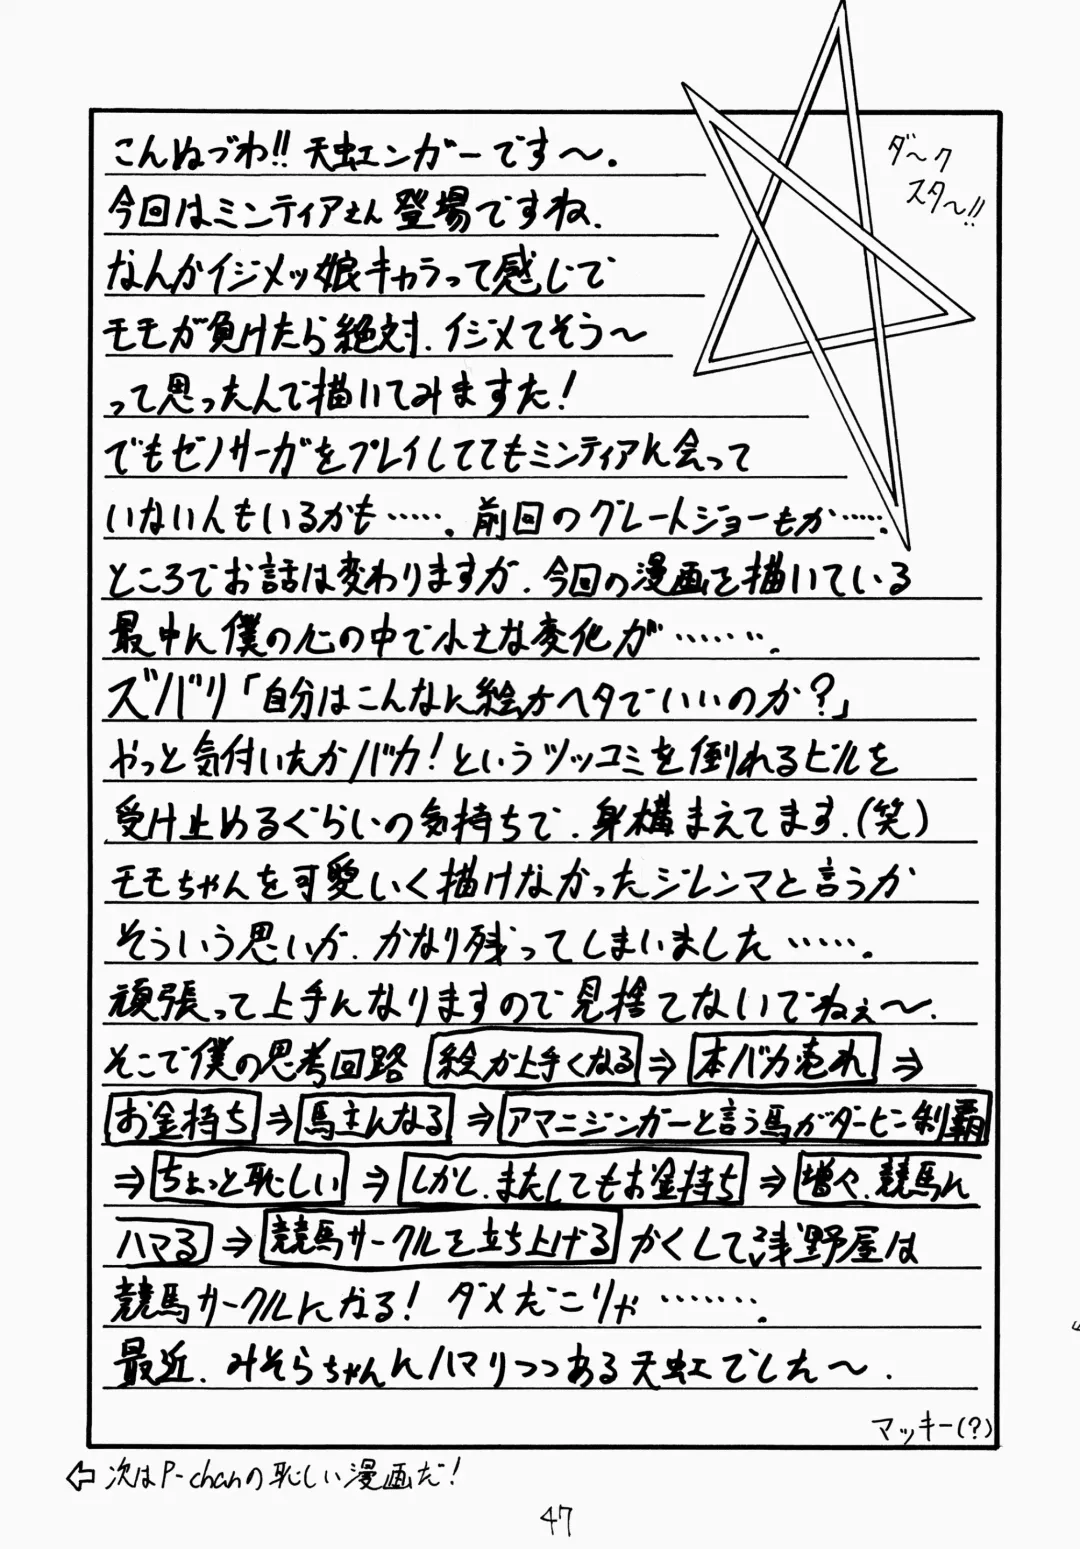 こんぬづわ!!天虹エンガーです〜.
ダ〜ク
スタ〜!!
今回はミンティアさん登場ですね.
なんかイジメッ娘キャラって感じで
モモが負けたら絶対.イジメてそう〜
って思ったんで描いてみますた!
でもゼノサーガをプレイしててもミンティアに会って
いない人もいるかも……. 前回のグレートジョーもか…….
ところでお話は変わりますが.今回の漫画を描いている
最中に僕の心の中で小さな変化が…….
ズバリ「自分はこんなに絵がヘタでいいのか?」
やっと気付いたかバカ!というツッコミを倒れるビルを
受け止めるぐらいの気持ちで.身構まえてます.(笑)
モモちゃんを可愛いく描けなかったジレンマと言うか
そういう思いが.かなり残ってしまいました…….
頑張って上手になりますので見捨てないでねぇ〜.
そこで僕の思考回路 絵が上手くなる⇒本バカ売れ⇒
お金持ち⇒馬主になる⇒アマニジンガーと言う馬がダービー制覇
⇒ちょっと恥しい⇒しかし.またしてもお金持ち⇒増々.競馬に
ハマる⇒競馬サークルを立ち上げる かくして浅野屋は
競馬サークルになる! ダメだこりゃ…….
最近.みそらちゃんにハマりつつある天虹でした〜.
マッキー(?)
⇦次はP-chanの恥しい漫画だ!
47